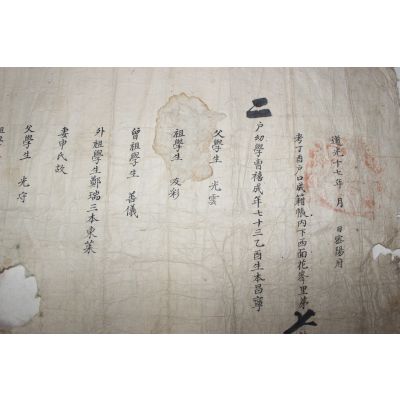 道光十七年 月 日密陽府
考丁酉戶口成籍帳內下西面花峯里第
二戶幼學曺禧成年七十三乙酉生本昌寧
父學生 光雲
祖學生 友彩
曾祖學生 善儀
外祖學生鄭瑞三本東萊
妻申氏故
父學生 光守